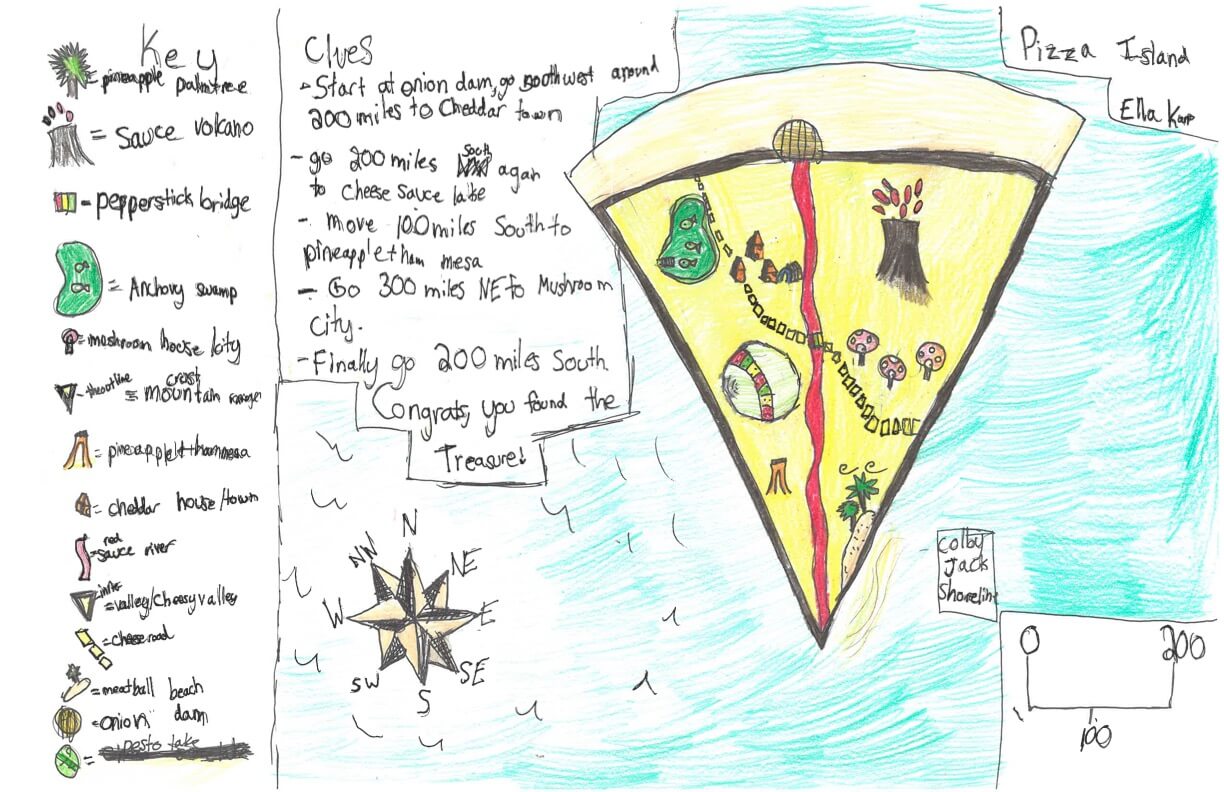 Key
= pineapple palmtree
= Sauce volcano
= pepperstick bridge
= Anchovy swamp
= mushroom house city
= the outline crust = mountain range
= pineapple + ham mesa
= cheddar house/town
= red sauce river
inner = valley/Cheesy valley
= cheese road
= meatball beach
= onion dam
= pesto lake
Clues
- Start at onion dam, go southwest around
200 miles to Cheddar town
- go 200 miles South again
to cheese sauce lake
- move 100 miles South to
pineapple + ham mesa
- Go 300 miles NE to Mushroom
City.
- Finally go 200 miles South.
Congrats, you found the
Treasure!
N
NE
E
SE
S
SW
W
NW
Pizza Island
Ella Karp
Colby
Jack
Shoreline
0
200
100